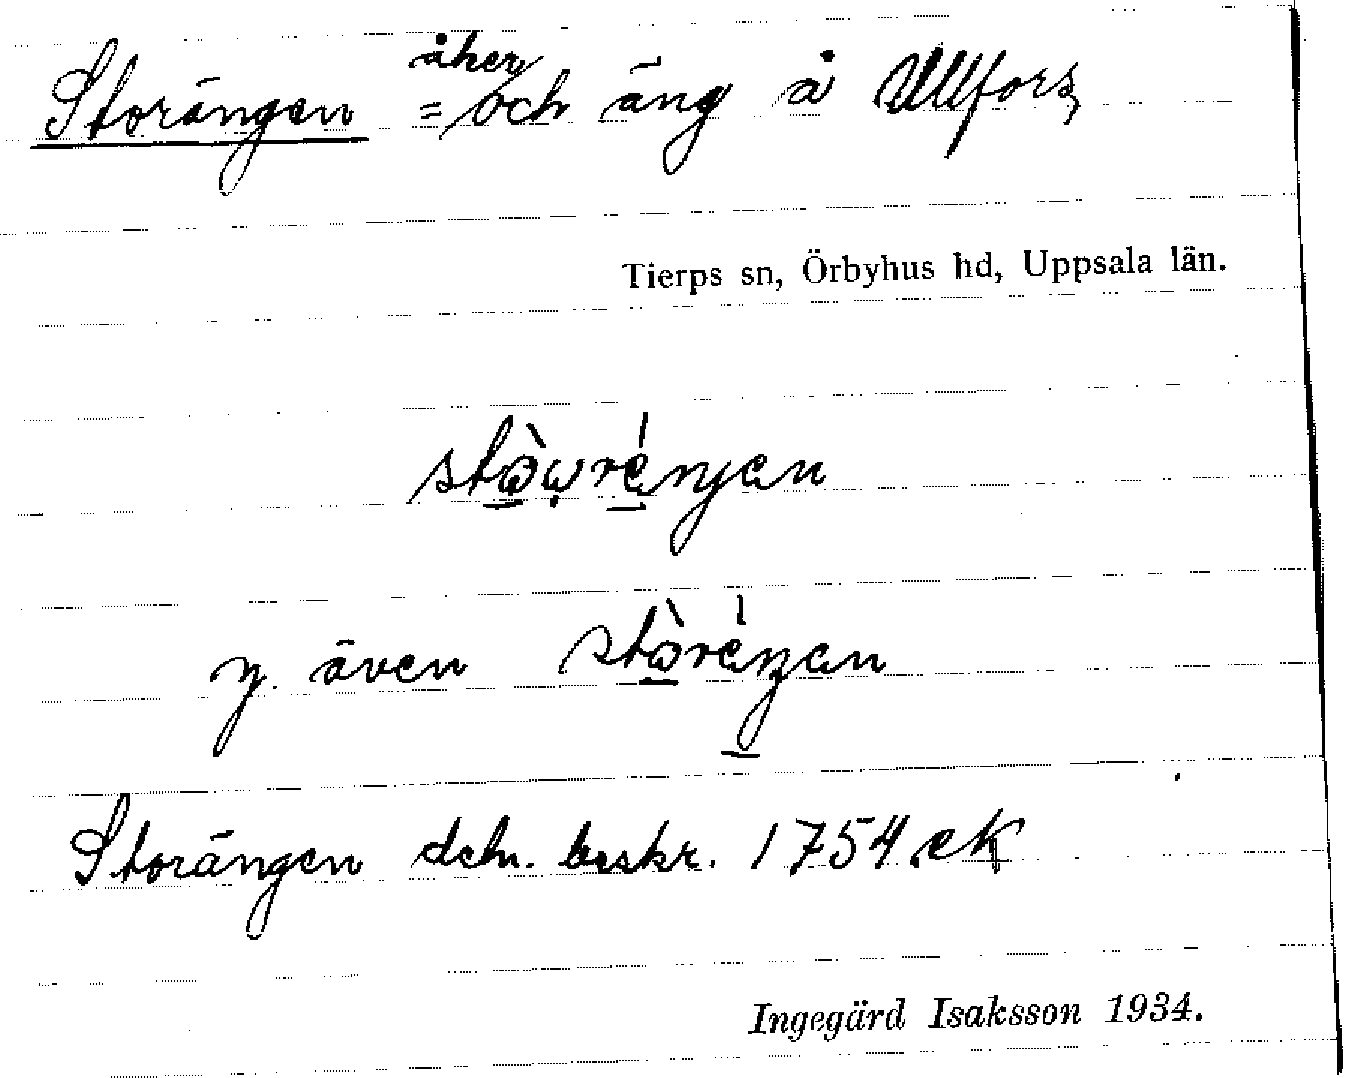 Storängen = åker och äng å Ullfors
Tierps sn, Örbyhus hd, Uppsala län.
y. även
Storängen dch. beskr. 1754
Ingegärd Isaksson 1934.